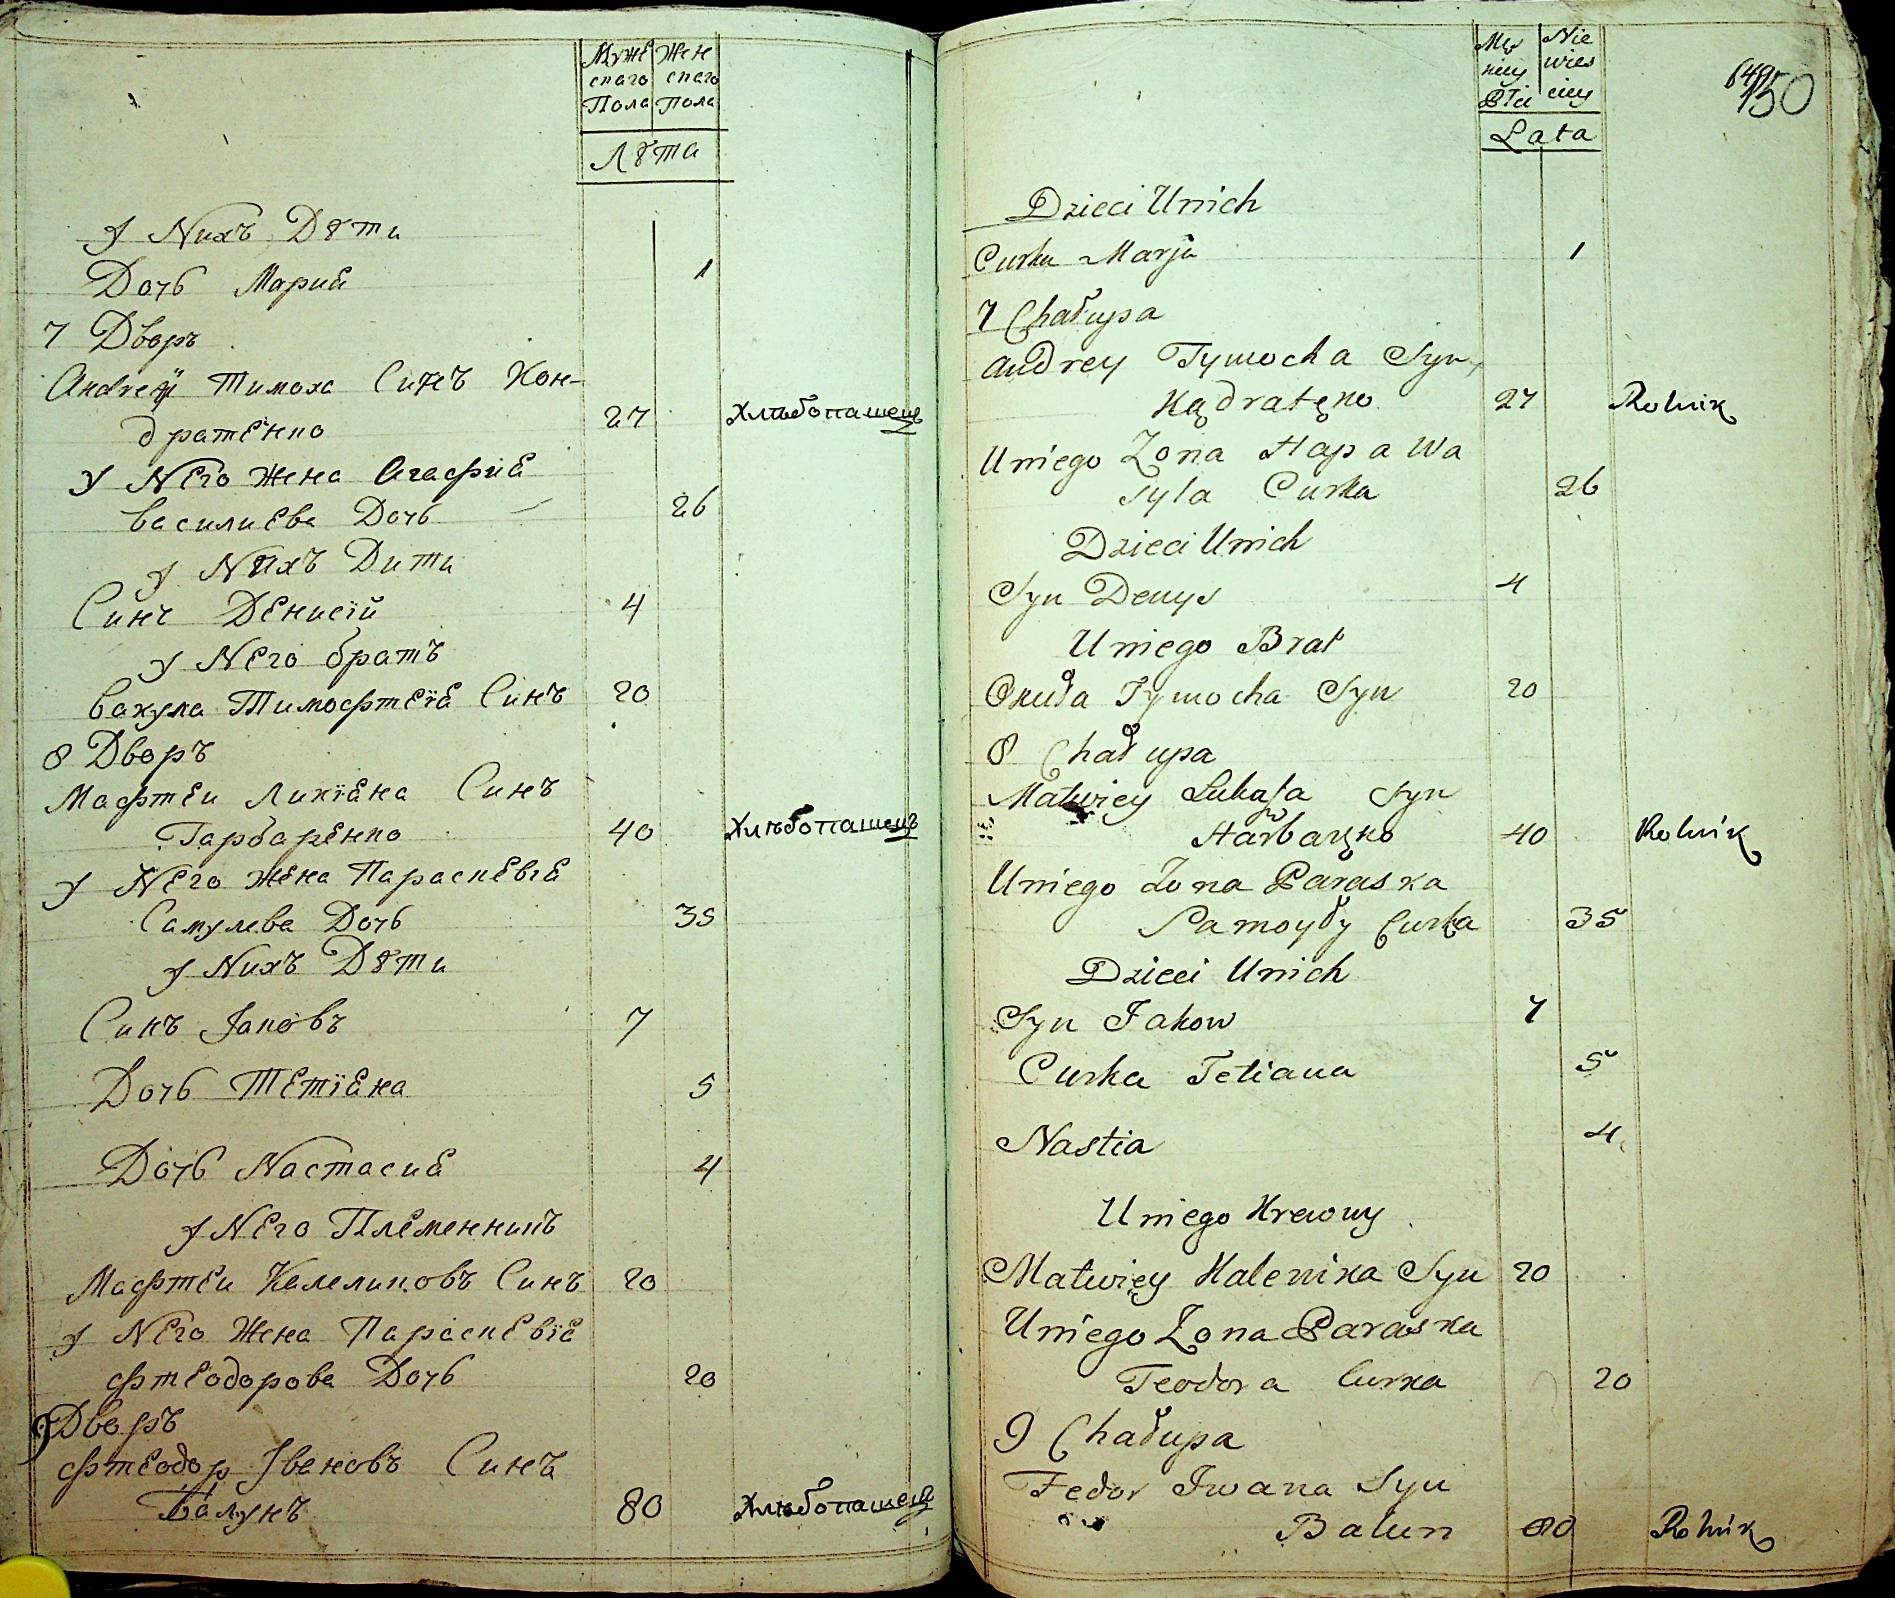 Муже Жен
скаго скаго
Пола Пола
Лѣта
У Nихъ Дѣти
Дочь Мария 1
7 Дворъ
Андrей Тимоха Синъ Кон-
дратенко 27 Хлѣбопашецъ
У Nего Жена Агафия
Василиева Дочь 26
У Nихъ Дити
Синъ Денисій 4
У Nего братъ
Вакула Тимофтеїа Синъ 20
8 Дворъ
Мафтеи Лукїана Синъ
Гарбаренко 40 Хлѣбопашецъ
У Nего Жена Параскевія
Самулева Дочь 35
У Nихъ Дѣти
Синъ Jаковъ 7
Дочь Тетїана 5
Дочь Nастасия 4
У Nего Племенникъ
Мафтеи Келеликовъ Синъ 20
У Nего Жена Параскевїа
Фтеодорова Дочь 20
9 Дворъ
Фтеодор Jвановъ Синъ
Балунъ 80 Хлѣбопашецъ
Nie
wies
Płci
Lata
150
Dzieci Unich
Curka Marja 1
7 Chałupa
Andrey Tymocha Syn
Kądratęko 27 Rolnik
Uniego Zona Hapa Wa
syla Curka 26
Dzieci Unich
Syn Denys 4
Uniego Brat
Tymocha Syn 20
8 Chałupa
Matwiey Lukasa Syn
Harbaręko 40 Rolnik
Uniego Zona Paraska
Samoyły Curka 35
Dzieci Unich
Syn Jakow 7
Curka Tetiana 5
Nastia 4
Uniego Krewny
Matwiey Kalenika Syn 20
Uniego Zona Paraska
Teodora Curka 20
9 Chałupa
Fedor Iwana Syn
Balun 80 Rolnik